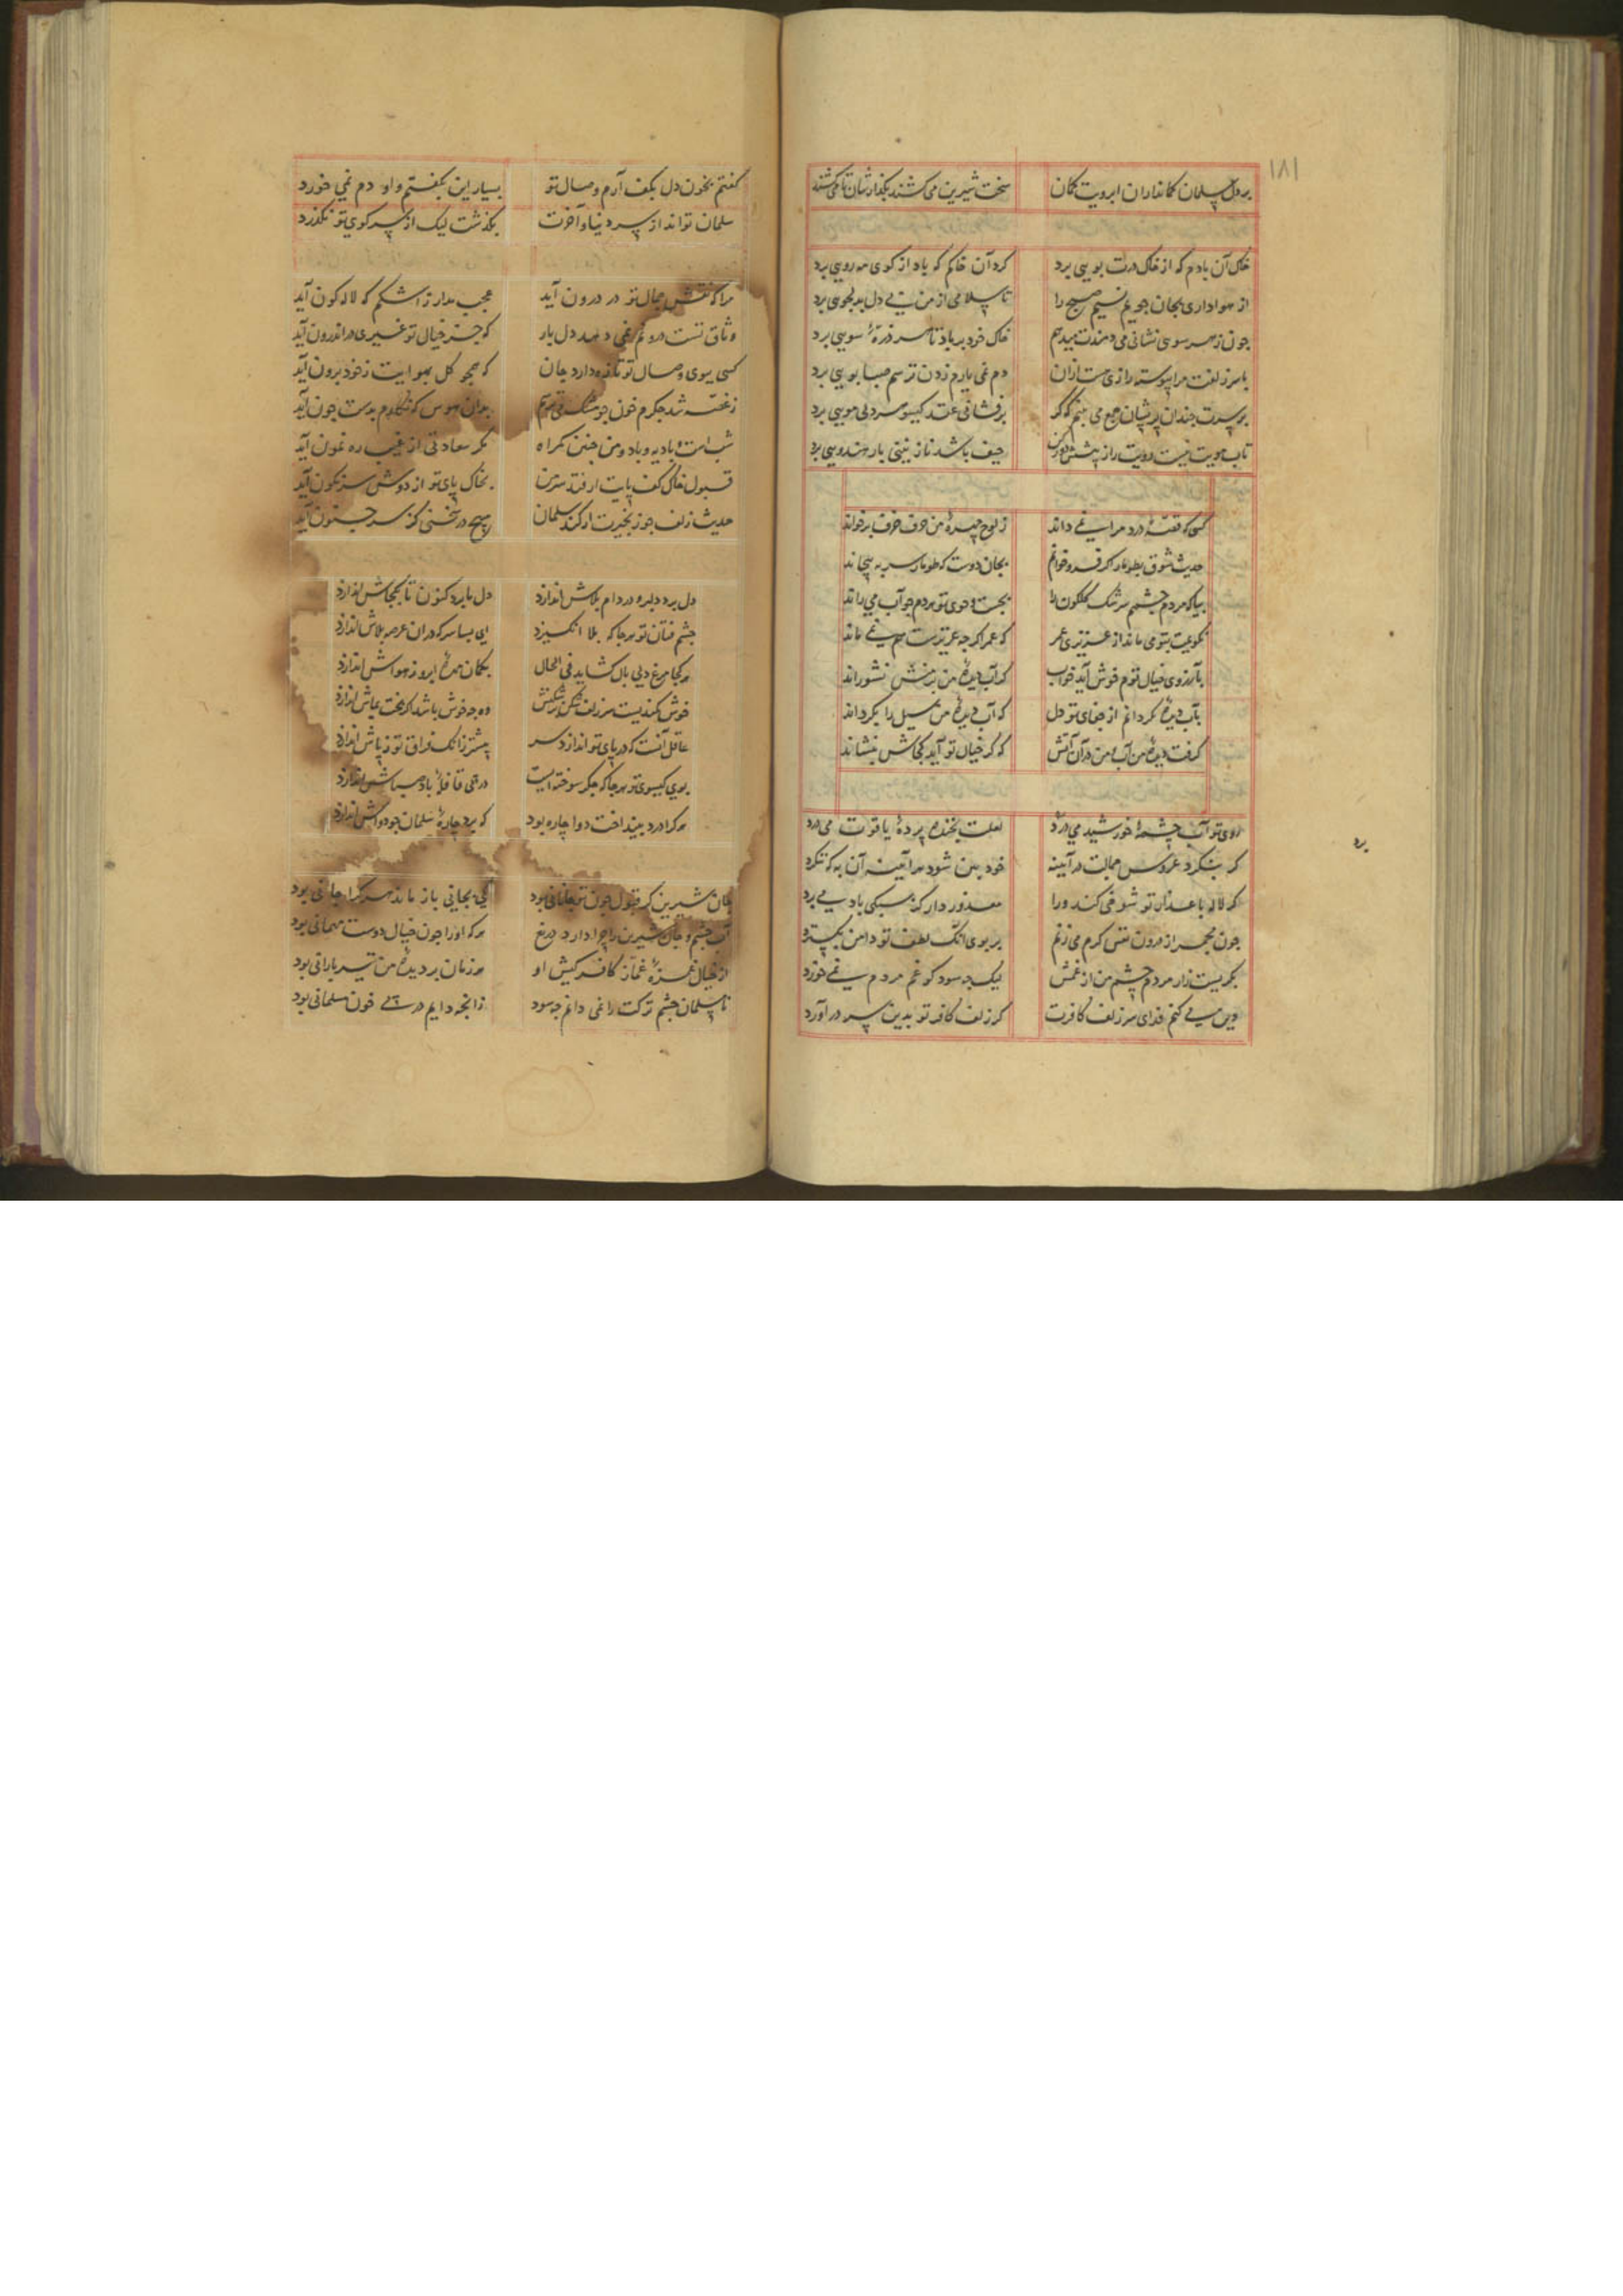 ۱۸۱
بر دل سلمان کمانداران ابرویت کمان سخت شیرین می کشند بگذارشان تا می کشند
خاک آن بادم که از خاک درت بویی برد کرد آن خاکم که باد از کوی مه رویی برد
از هواداری بجان جویم نسیم صبح را تا سلامی از من بی دل بدلجوی برد
چون ز هر سوی نشانی می دهندت میدهم خاک خود بر باد تا هر ذرهٔ سویی برد
با سر زلفت مرا پیوسته رازی دم نمی یارم زدن ترسم صبا بویی برد
بر سرت چندان پریشان جمع می بینم که گر برفشانی عقد کیسو هر دلی مویی برد
تاب مویت نیست رویت را ز پیشش دور کن حیف باشد نازنینی بار هندویی برد
کسی که قصهٔ درد مرا نمی داند ز لوح چهرهٔ من حرف حرف برخواند
حدیث شوق بطومار اگر فرو خوانم بجان دوست که طومار سر بپیچاند
بیا که مردم چشمم سرشک کلکون را بجست و جوی تو مردم جو آب می راند
نکویمت بتو می ماند از عزیزی عمر که عمر اگر چه عزیزست هم نمی ماند
بآرزوی خیال توم خوش آید خواب که آب دیدهٔ من بر منش نشوراند
بآب دیده بکردانم از جفای تو دل که آب دیدهٔ من سیل را بکرداند
کرفت دیدهٔ من آب من در آن آتش که گر خیال تو آید کجاش بنشاند
روی تو آب چشمهٔ خورشید می درد لعلت بخنده پردهٔ یاقوت می درد
گر بنکرد عروس جمالت در آینه خود بین شود در آینه آن به که ننکرد
گر لاله با عذار تو شوخی کند ورا معذور دار کز سبکی باد می برد
چون مجمر از درون نفس کرم می زنم بر بوی آنک لطف تو دامن بکسترد
بکریست زار مردم چشم من از غمش لیکن چه سود کو غم مردم نمی خورد
دین می کنم فدای سر زلف کافرت گر زلف کافر تو بدین سر در آورد
برد
گفتم بخون دل بکف آرم وصال تو بسیار این بگفتم و او دم نمی خورد
سلمان تواند از سر دنیا و آخرت بگذشت لیک از سر کوی تو نگذرد
مرا که نقش جمال تو در درون آید عجب مدار ز اشکم که لاله کون آید
وثاق تست درونم نمی دهد دل بار که جز خیال تو غیری در اندرون آید
کسی ببوی وصال تو تازه دارد جان که همچو کل بهوایت ز خود برون آید
ز غصه شد جکرم خون چو مشک بدان هوس که نکارم بدست چون آید
شب است و بادیه و باد و من چنین کمراه مکر سعادتی از غیب ره نمون آید
قبول خاک کف پایت ار فتد سر من بخاک پای تو از دوش سرنکون آید
حدیث زلف جو زنجیرت ار کند سلمان مپیچ در سخنی کز سر جنون آید
دل برد دلبر و در دام بلاش اندازد دل ما برد کنون تا بکجاش اندازد
چشم فتان تو هر جا که بلا انکیزد ای بسا سر که در آن عرصه بلاش اندازد
هر کجا مرغ دلی بال کشاید فی الحال بکمان مهرهٔ ابرو ز هواش اندازد
خوش کمندیست سر زلف شکن بر شکنش وه چه خوش باشد اگر بخت بماش اندازد
عاقل آنست که در پای تو اندازد سر پیشتر زانک فراق تو ز پاش اندازد
بوی کیسوی تو هر جا که جکر سوخته ایست در پی قافلهٔ باد صباش اندازد
هر کرا درد بینداخت دوا چاره بود که برد چارهٔ سلمان چو دواش اندازد
جان شیرین گر قبول چون تو جانانی بود کی بجانی باز ماند هر کرا جانی بود
آب چشم و جان شیرین را چرا دارد دریغ هر که او را چون خیال دوست مهمانی بود
از خیال غمزهٔ غماز کافر کیش او هر زمان بر دیدهٔ من تیر بارانی بود
نامسلمان چشم ترکت را نمی دانم چه سود زانچه دایم در پی خون مسلمانی بود